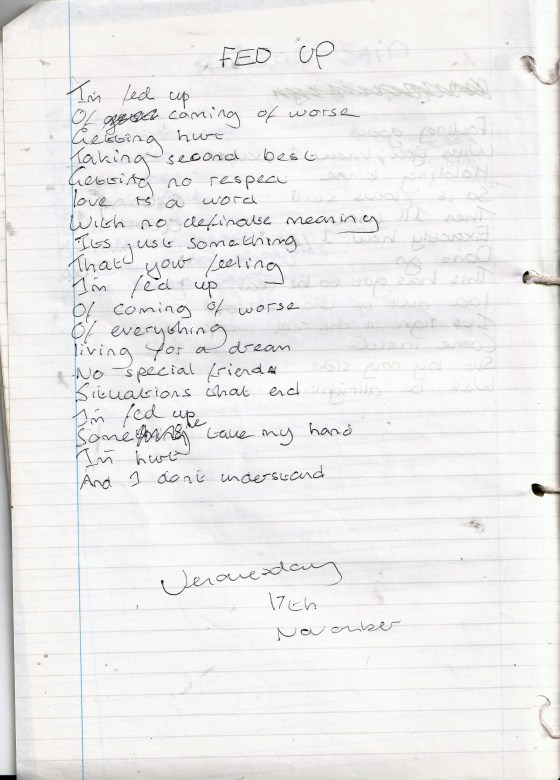 FED UP
I'm fed up
Of coming of worse
Getting hurt
Taking second best
Getting no respect
love is a word
With no definate meaning
Its just something
That your feeling
I'm fed up
Of coming of worse
Of everything
living for a dream
No special friends
Situations that end
I'm fed up
Someone take my hand
I'm hurt
And I dont understand
Wednesday
17th
November